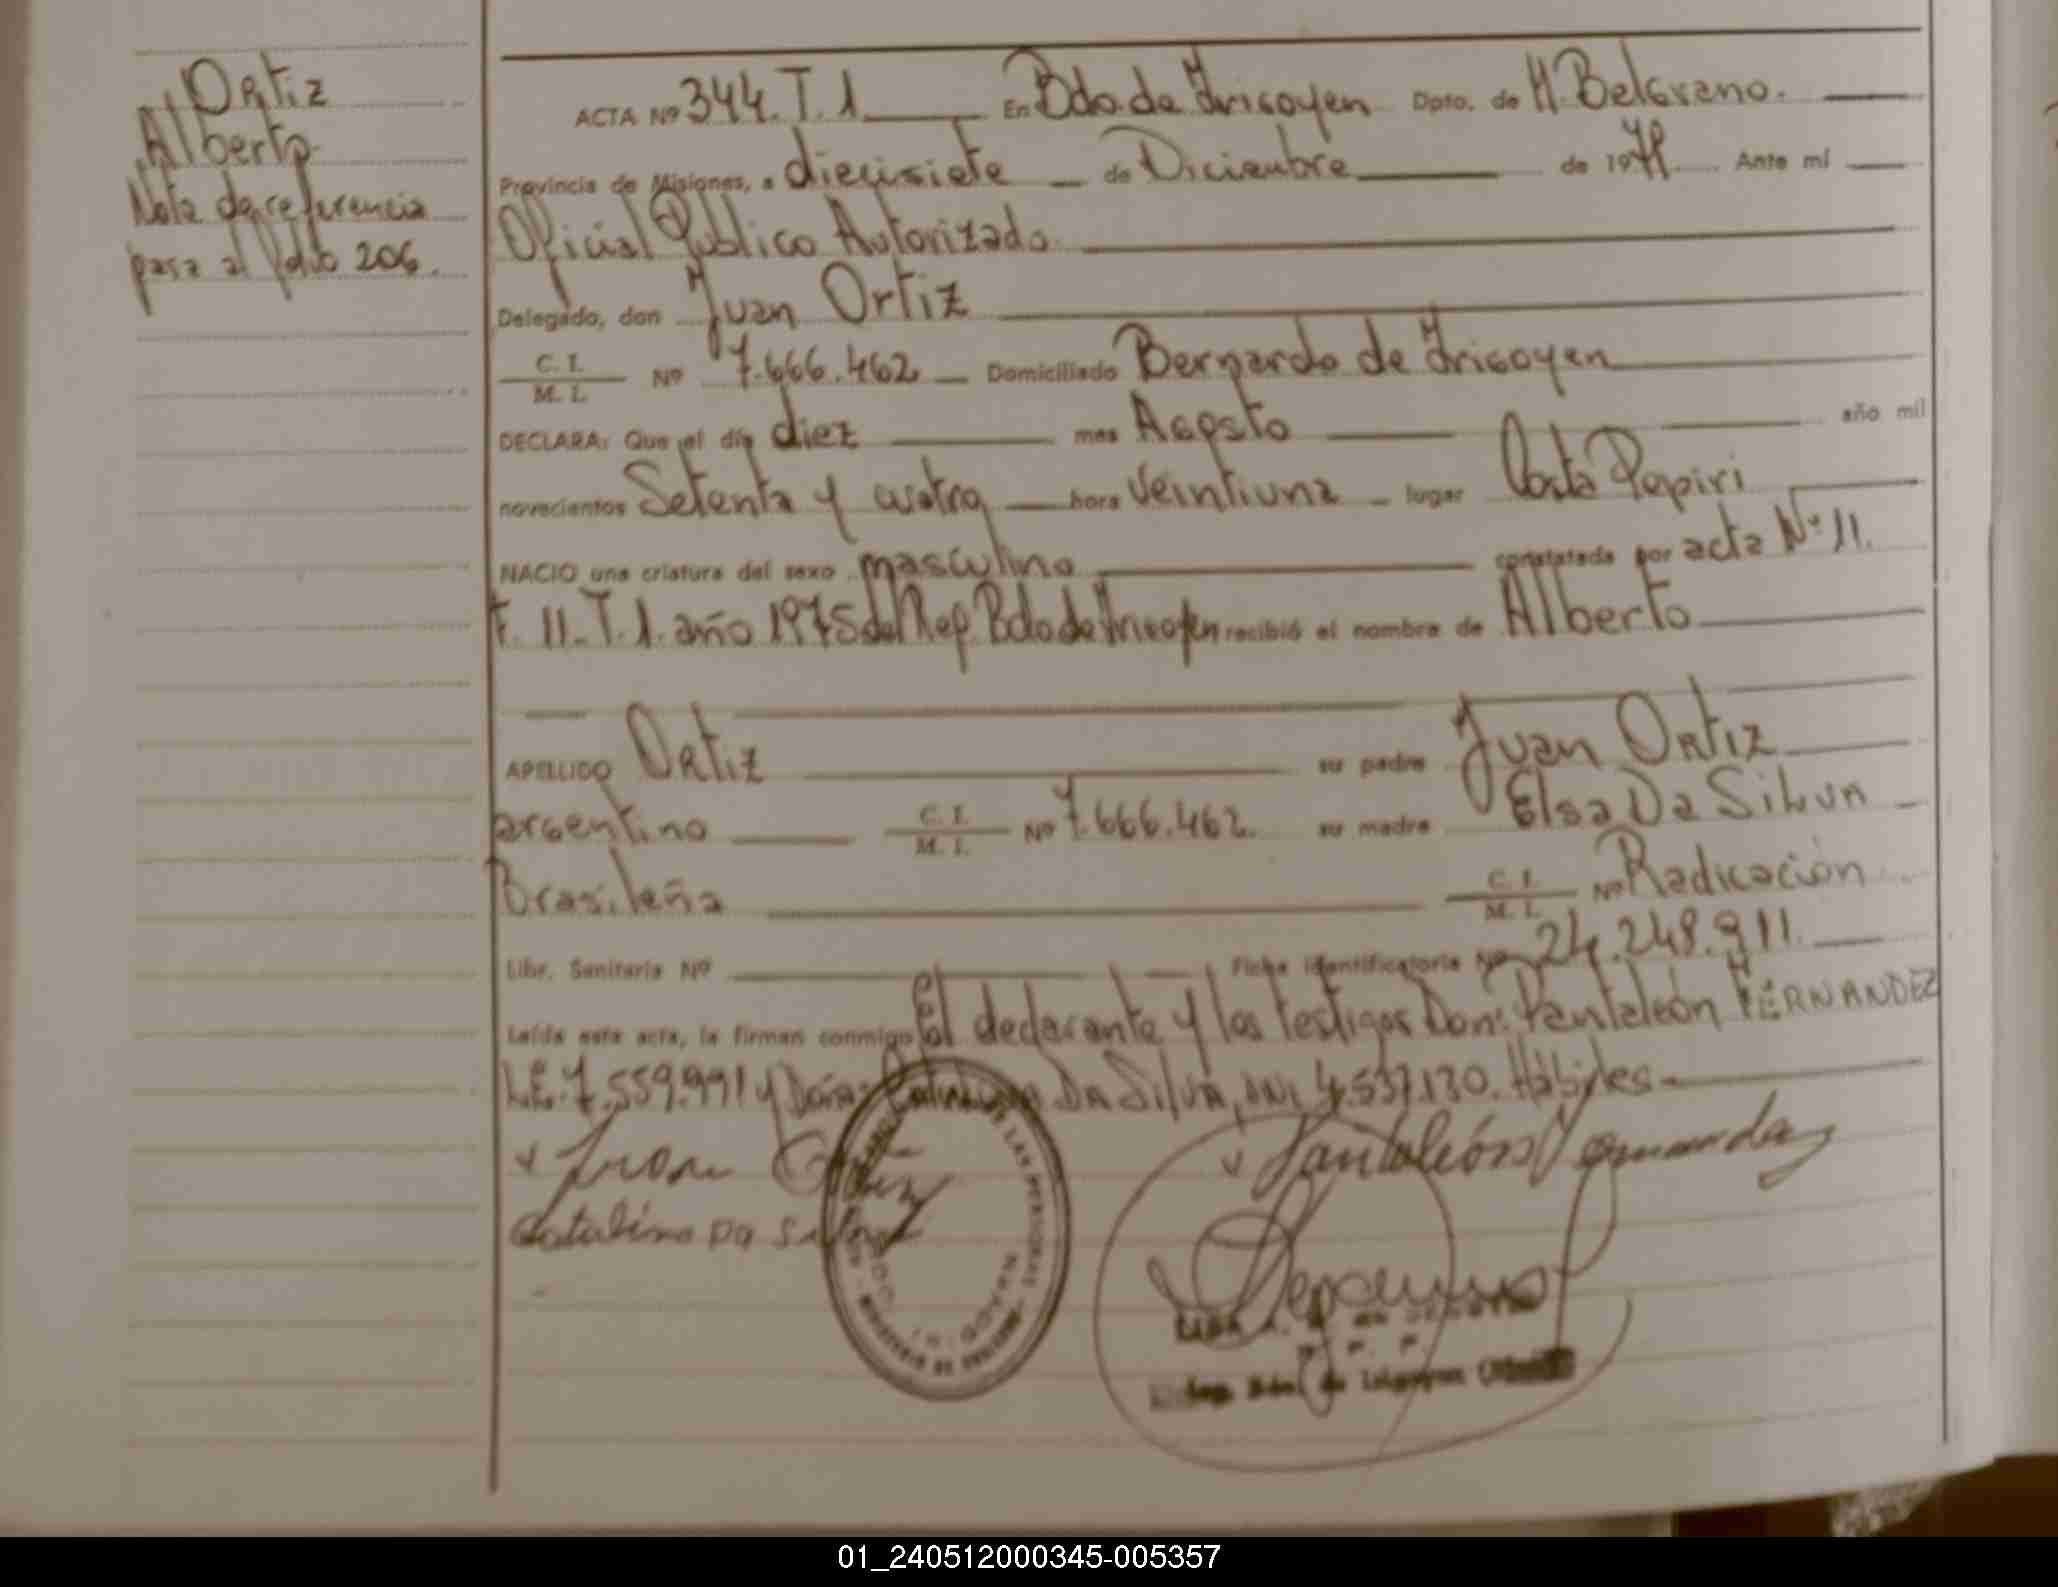 Ortiz
Alberto
Nota de referencia
pasa al folio 206.
ACTA Nº 344. T. 1 En Bdo de Irigoyen Dpto. de M. Belgrano.
Provincia de Misiones, a diecisiete de Diciembre de 19 Ante mí
Oficial Público Autorizado
Delegado, don Juan Ortiz
C. I.
M. I. Nº 7.666.462 Domiciliado Bernardo de Irigoyen
DECLARA: Que el día diez mes Agosto año mil
novecientos Setenta y cuatro hora Veintiuna lugar Costa Pepiri
NACIO una criatura del sexo masculino constatada por acta Nº 11.
F. 11. T. 1. año 1975 del Reg Bdo de Irigoyen recibió el nombre de Alberto
APELLIDO Ortiz su padre Juan Ortiz
argentino C. I.
M. I. Nº 7.666.462. su madre Elsa Da Silva
Brasileña C. I.
M. I. Nº Radicación
Libr. Sanitaria Nº Ficha identificatoria Nº 24.248.911.
Leída esta acta, la firman conmigo El declarante y los testigos Don: Pantaleón FERNANDEZ
L.E. 7.559.991 y Doña: Catalina Da Silva, DNI 4.537.130. Hábiles.
Juan Ortiz Pantaleón Fernandez
Catalina Da Silva
DE LAS PERSONAS
01_240512000345-005357